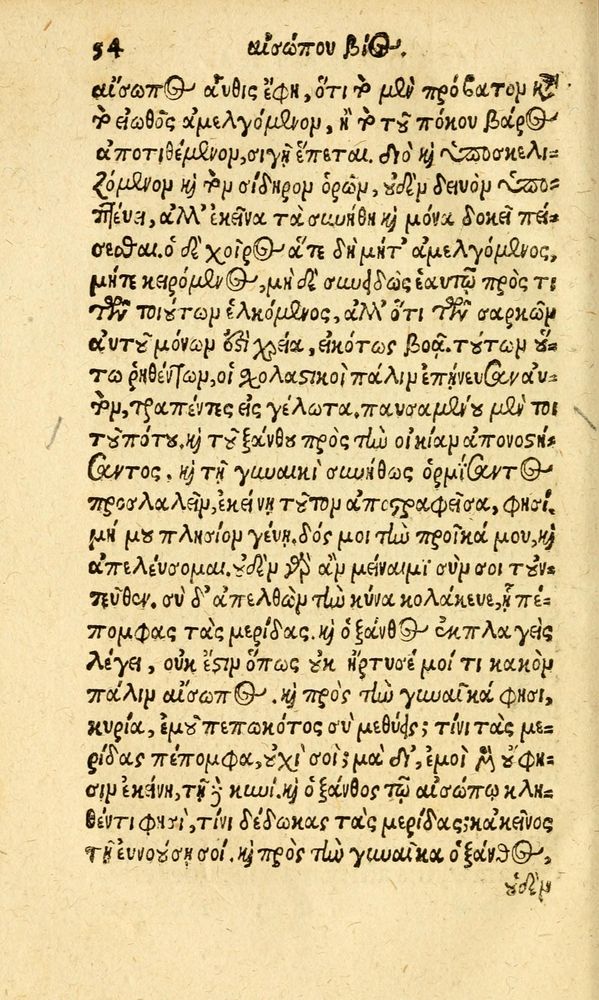 54 αἰσώπου βίος.
αἴσωπος αὖθις ἔφη, ὅτι τὸ μὲν πρόβατον καὶ
τὸ εἰωθὸς ἀμελγόμενον, ἢ τὸ τοῦ πόκου βάρος
ἀποτιθέμενον, σιγῇ ἕπεται. διὸ καὶ ὑποσκελι-
ζόμενον καὶ τὸν σίδηρον ὁρῶν, οὐδὲν δεινὸν ὑπο-
πτεύει, ἀλλ' ἐκεῖνα τὰ συνήθη καὶ μόνα δοκεῖ πεί-
σεσθαι. ὁ δὲ χοῖρος ἅτε δὴ μήτ' ἀμελγόμενος,
μήτε κειρόμενος, μὴ δὲ συνειδὼς ἑαυτῷ πρὸς τι
τῶν τοιούτων ἑλκόμενος, ἀλλ' ὅτι τῶν σαρκῶν
αὐτοῦ μόνων ἐστὶ χρεία, εἰκότως βοᾷ. τούτων οὕ-
τω ῥηθέντων, οἱ σχολαστικοὶ πάλιν ἐπῄνευσαν αὐ-
τὸν, τραπέντες εἰς γέλωτα. παυσαμένου μὲν τοι
τοῦ πότου. καὶ τοῦ ξάνθου πρὸς τὴν οἰκίαν ἀπονοστή-
σαντος. καὶ τῇ γυναικὶ συνήθως ὁρμήσαντος
προσλαλεῖν, ἐκείνη τοῦτον ἀποστραφεῖσα, φησί.
μή μου πλησίον γένῃ. δός μοι τὴν προῖκά μου, καὶ
ἀπελεύσομαι. οὐδὲν γὰρ ἂν μείναιμι σύν σοι τοὐν-
τεῦθεν. σὺ δ' ἀπελθὼν τὴν κύνα κολάκευε, ᾗ πέ-
πομφας τὰς μερίδας. καὶ ὁ ξάνθος ἐκπλαγεὶς
λέγει, οὐκ ἔστιν ὅπως οὐκ ἤρτυσέ μοί τι κακὸν
πάλιν αἴσωπος. καὶ πρὸς τὴν γυναῖκά φησι,
κυρία, ἐμοῦ πεπωκότος σὺ μεθύεις; τίνι τὰς με-
ρίδας πέπομφα, οὐχὶ σοί; μὰ δί', ἐμοὶ μὲν οὔ φη-
σιν ἐκείνη, τῇ δὲ κυνί. καὶ ὁ ξάνθος τῷ αἰσώπῳ κλη-
θέντι φησὶ, τίνι δέδωκας τὰς μερίδας; κἀκεῖνος
τῇ εὐνοούσῃ σοί. καὶ πρὸς τὴν γυναῖκα ὁ ξάνθος,
οὐδὲν